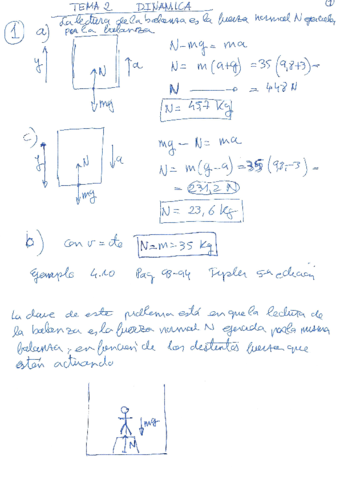 TEMA 2 DINAMICA
La lectura de la balanza es la fuerza normal N ejercida
por la balanza
1 a)
N - mg = ma
N = m(a+g) = 35(9,8+3) =
N → = 448 N
N = 45,7 Kg
y
N
a
mg
c)
mg - N = ma
N = m(g-a) = 35(9,8-3) =
= 231,2 N
N = 23,6 kg
y
N
a
mg
b) con v = cte N=m=35 Kg
Ejemplo 4.10 Pag 93-94 Tipler 5ª edición
La clave de este problema está en que la lectura de
la balanza es la fuerza normal N ejercida por la misma
balanza, en función de las distintas fuerzas que
estén actuando
mg
N